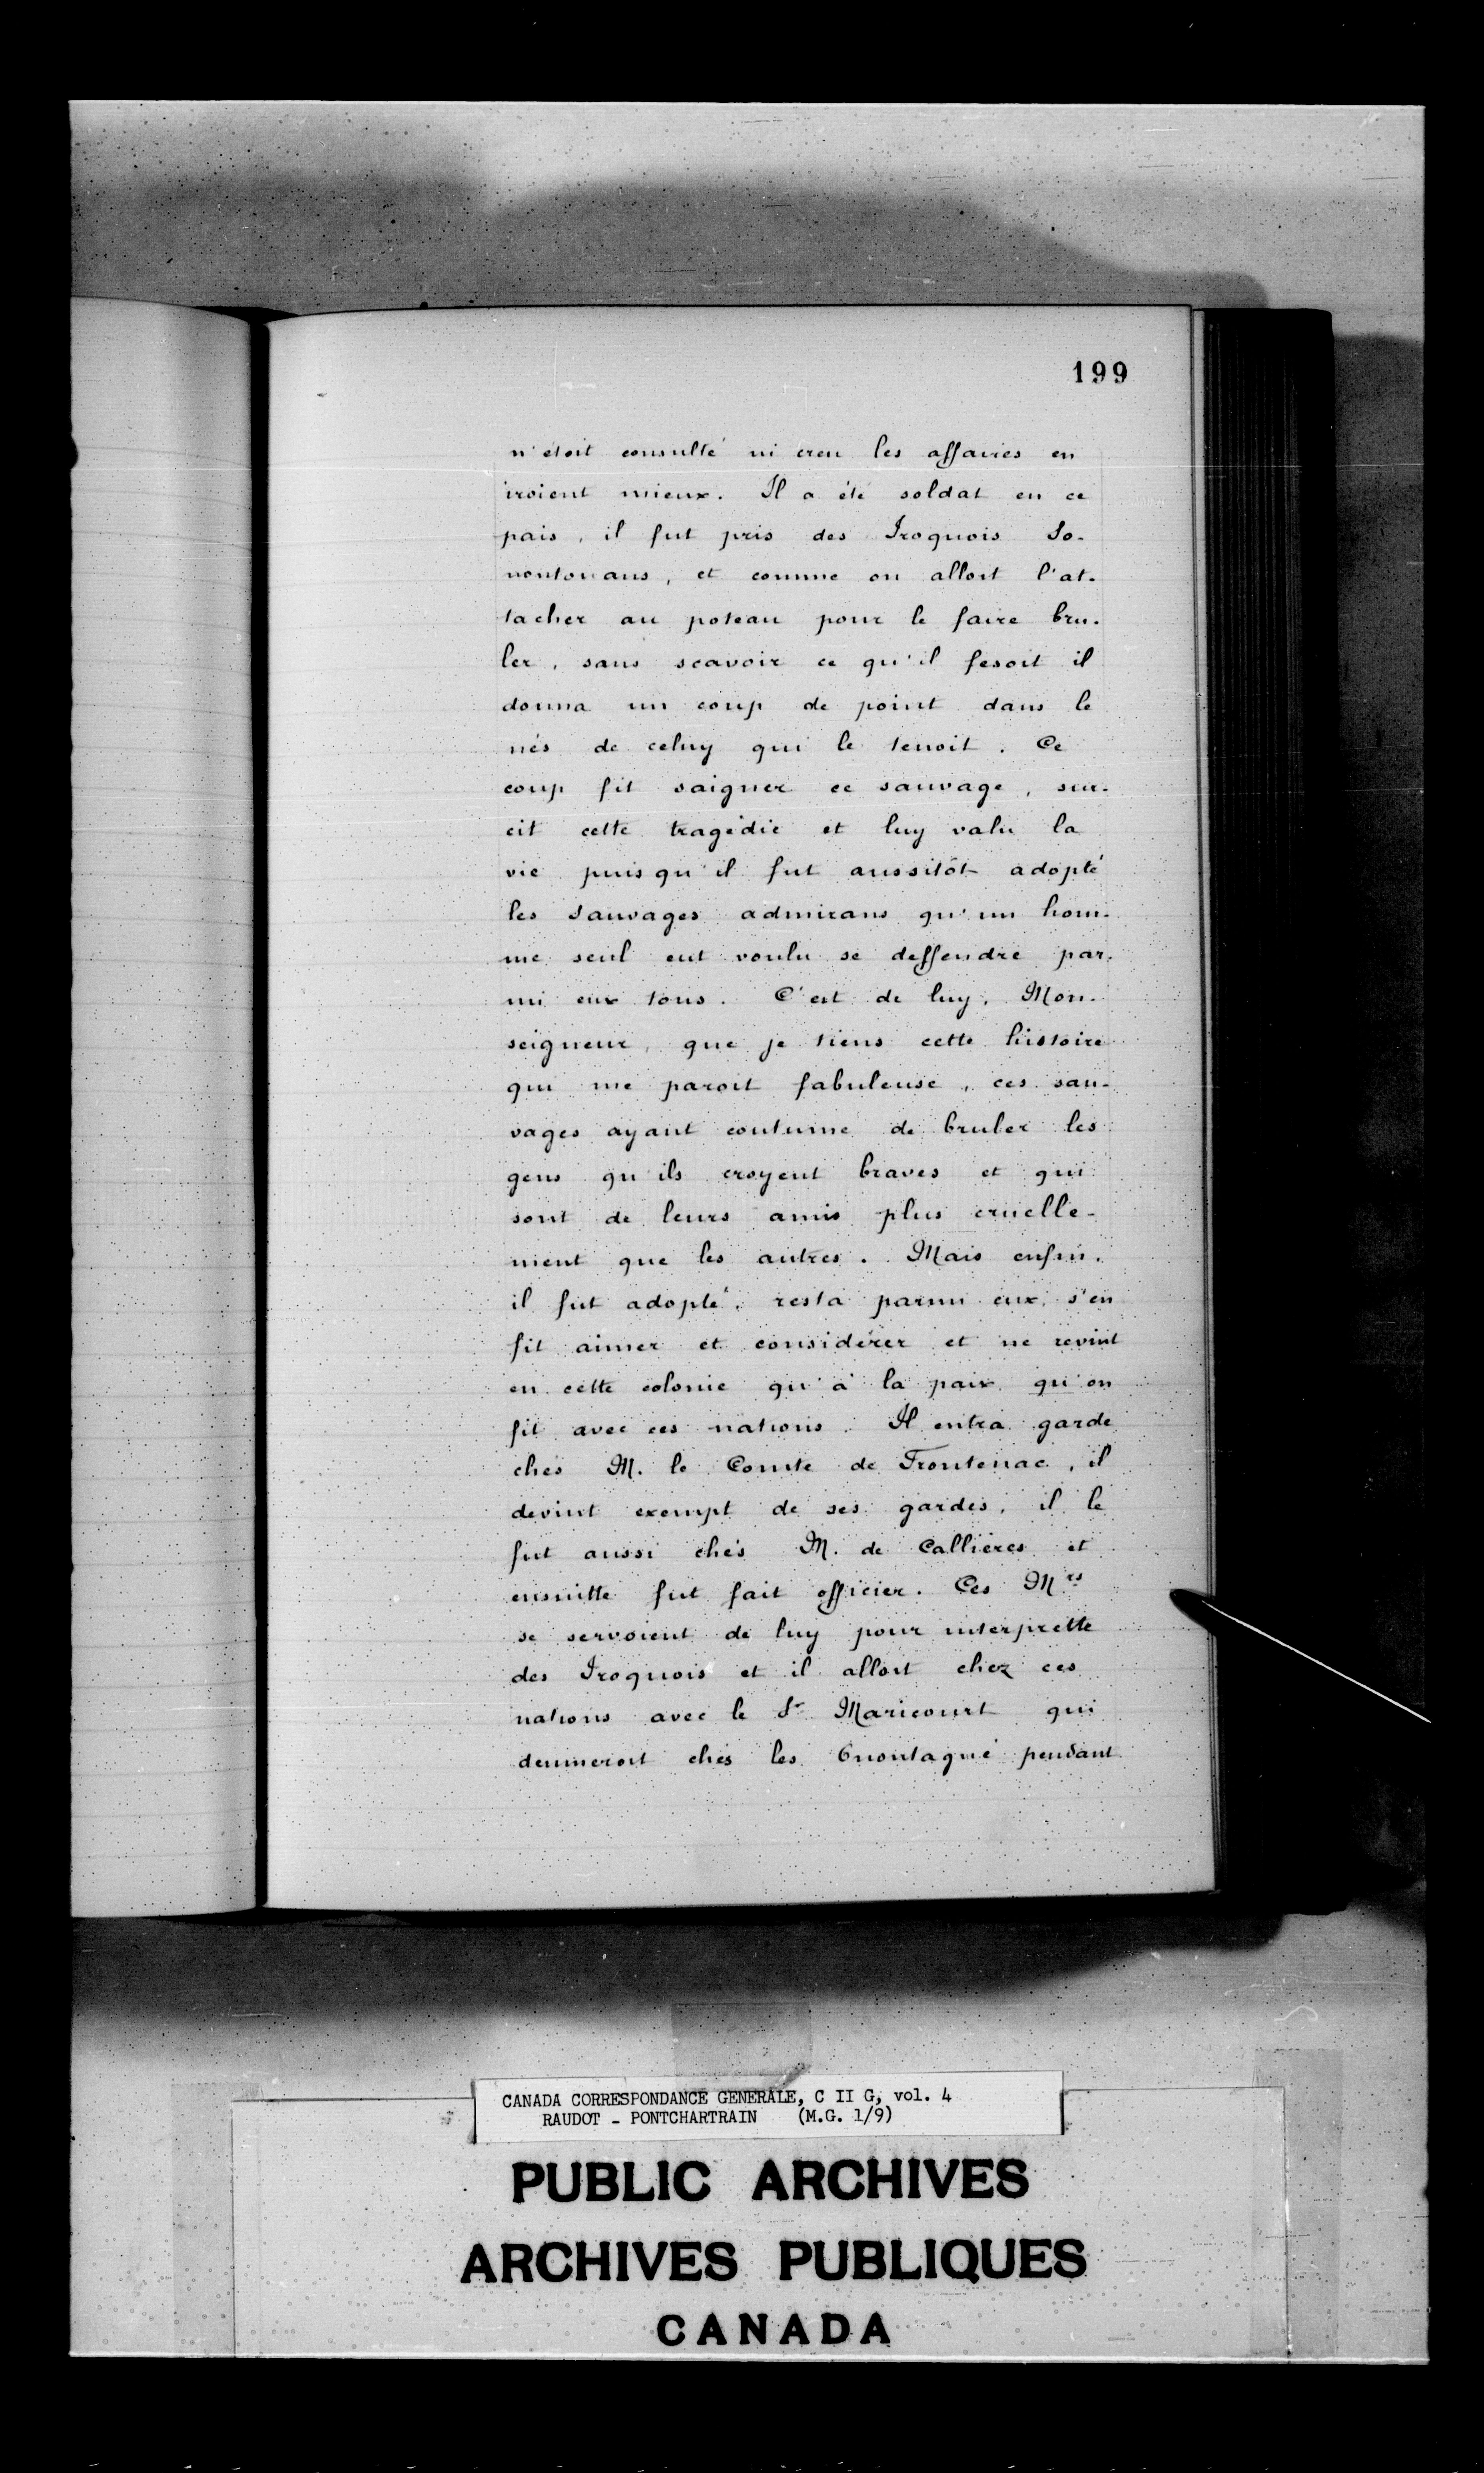 199
n'étoit consulté ni creu les affaires en
iroient mieux. Il a été soldat en ce
pais, il fut pris des Iroquois So-
nontouans, et comme on alloit l'at-
tacher au poteau pour le faire bru-
ler, sans scavoir ce qu'il fesoit il
donna un coup de point dans le
nés de celuy qui le tenoit. Ce
coup fit saigner ce sauvage,
cette tragédie et luy valu la
vie puisqu'il fut aussitôt adopté
les Sauvages admirans qu'un hom-
me seul eut voulu se deffendre par-
mi eux tous. C'est de luy, Mon-
seigneur, que je tiens cette histoire
qui me paroit fabuleuse, ces sau-
vages ayant coutume de bruler les
gens qu'ils croyent braves et qui
sont de leurs amis plus cruelle-
ment que les autres. Mais enfin,
il fut adopté, resta parmi eux, s'en
fit aimer et considérer et ne revint
en cette colonie qu'à la paix qu'on
fit avec ces nations. Il entra garde
chés M. le Comte de Frontenac, il
devint exempt de ses gardes, il le
fut aussi chés M. de Callières et
ensuitte fut fait officier. Ces Mrs
se servoient de luy pour interprette
des Iroquois et il alloit chez ces
nations avec le Sr Maricourt qui
demeuroit chés les Onontagué pendant
CANADA CORRESPONDANCE GENERALE, C II G, vol. 4
RAUDOT - PONTCHARTRAIN (M.G. 1/9)
PUBLIC ARCHIVES
ARCHIVES PUBLIQUES
CANADA